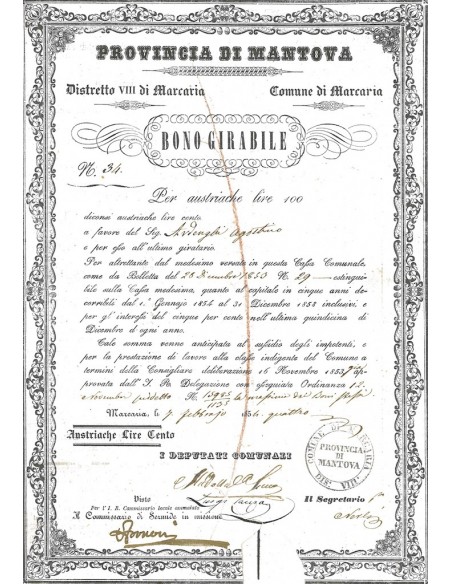 PROVINCIA DI MANTOVA
Distretto VIII di Marcaria Comune di Marcaria
BONO GIRABILE
N. 34.
Per austriache lire 100
diconsi austriache lire cento
a favore del Sig. Arvenghi Agostino
e per esso all'ultimo giratario.
Per altrettante dal medesimo versate in questa Cassa Comunale,
come da Bolletta del 28 Dicembre 1853 N. 29 estingui-
bile sulla Cassa medesima, quanto al capitale in cinque anni de-
corribili dal 1.° Gennajo 1854 al 31 Dicembre 1858 inclusivi, e
per gl' interessi del cinque per cento nell'ultima quindicina di
Dicembre d'ogni anno.
Tale somma venne anticipata al sussidio degli impotenti, e
per la prestazione di lavoro alla classe indigente del Comune a
termini della Consigliare deliberazione 16 Novembre 1853 ap-
provata dall' I. R. Delegazione con ossequiata Ordinanza 12
Novembre suddetto N.
Marcaria, li 7 febbrajo 1854 quattro
Austriache Lire Cento
I DEPUTATI COMUNALI
Luigi
COMUNE DI MARCARIA
PROVINCIA
DI
MANTOVA
DIS. VIII
Visto
Per l' I. R. Commissario locale ammalato
Il Commissario di Gonzaga in missione
Il Segretario